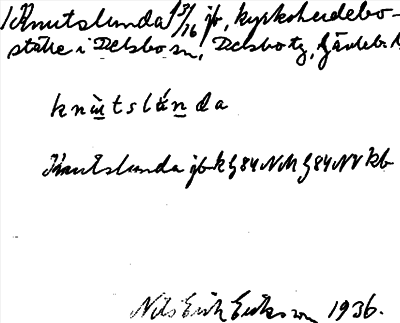 Knutslunda 13/16 jb, kyrkoherdebo-
ställe i Delsbo sn, Delsbo tg, Gävleb. l
knùtslánda
Knutslunda jb k G84NM G84NV kb
Nils Erik Eriksson 1936.